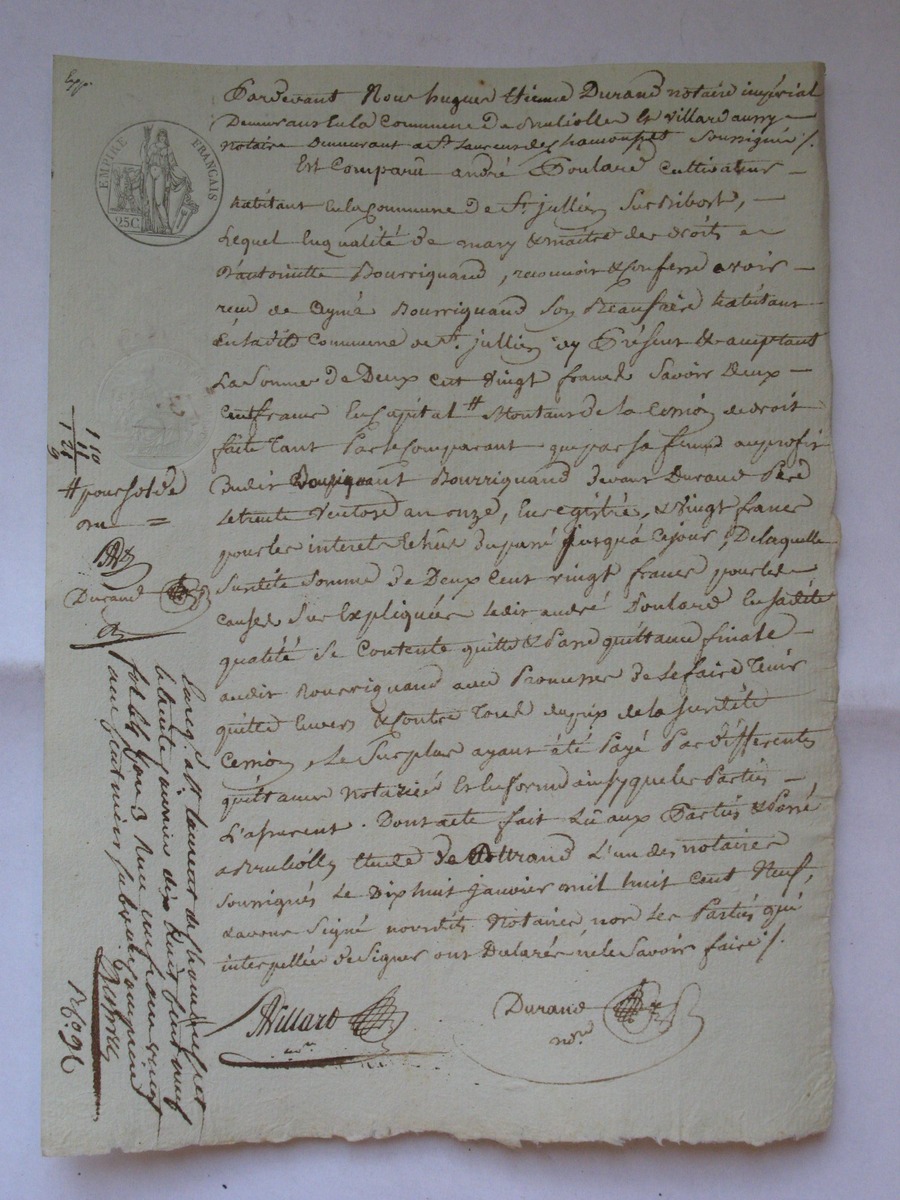 Exp.
EMPIRE FRANÇAIS
25C
Pardevant Nous hugues Etienne Durand notaire impérial
Demeurant en la Commune de & Villard aussy
notaire Demeurant a St. Laurent de Chamousset Soussignés /.
Est Comparû andré Poulard Cultivateur
habitant en la Commune de St. jullien Sur Bibost,
Lequel En qualité de mary & maître des droits
D'antoinette Bourriquand, reconnoit & Confesse avoir
reçu de Bourriquand Son Beaufrère habitant
En ladite Commune de St. jullien icy Présent & acceptant
La Somme de Deux cent vingt francs Savoir Deux
Cent francs En Capital # Montant de la Cession de droit
faite tant Par le Comparant que par sa femme au profit
Dudit Bourriquand devant Durand Père
Le trente Ventose an onze, Enregistré, & vingt francs
pour les interets Echus du passé jusqu'à Ce jour, De laquelle
Susdite Somme de Deux Cent vingt francs pour les
causes Sus Expliquées Ledit andré Poulard En sadite
qualité Se Contente quitte & Passe quittance finale
audit Bourriquand avec Promesse de le faire Tenir
quitte Envers & Contre Tous du prix de la Susdite
Cession, Le Surplus ayant été Payé Par différentes
quittances notariées En la forme ainsy que les Parties
L'assurent. Dont acte fait Lû aux Parties & Passé
a Etude de L'un des notaires
Soussignés Le Dix huit janvier mil huit Cent Neuf,
& avons Signé nousdits Notaires, non Les Parties qui
interpellées de Signer ont Déclarés ne le Savoir faire /.
Villard
Durand
nore
# pour Solde
Durand
Enreg. à St. Laurent de Chamousset
le trente janvier dix huit Cent neuf
fol. Reçu un franc vingt